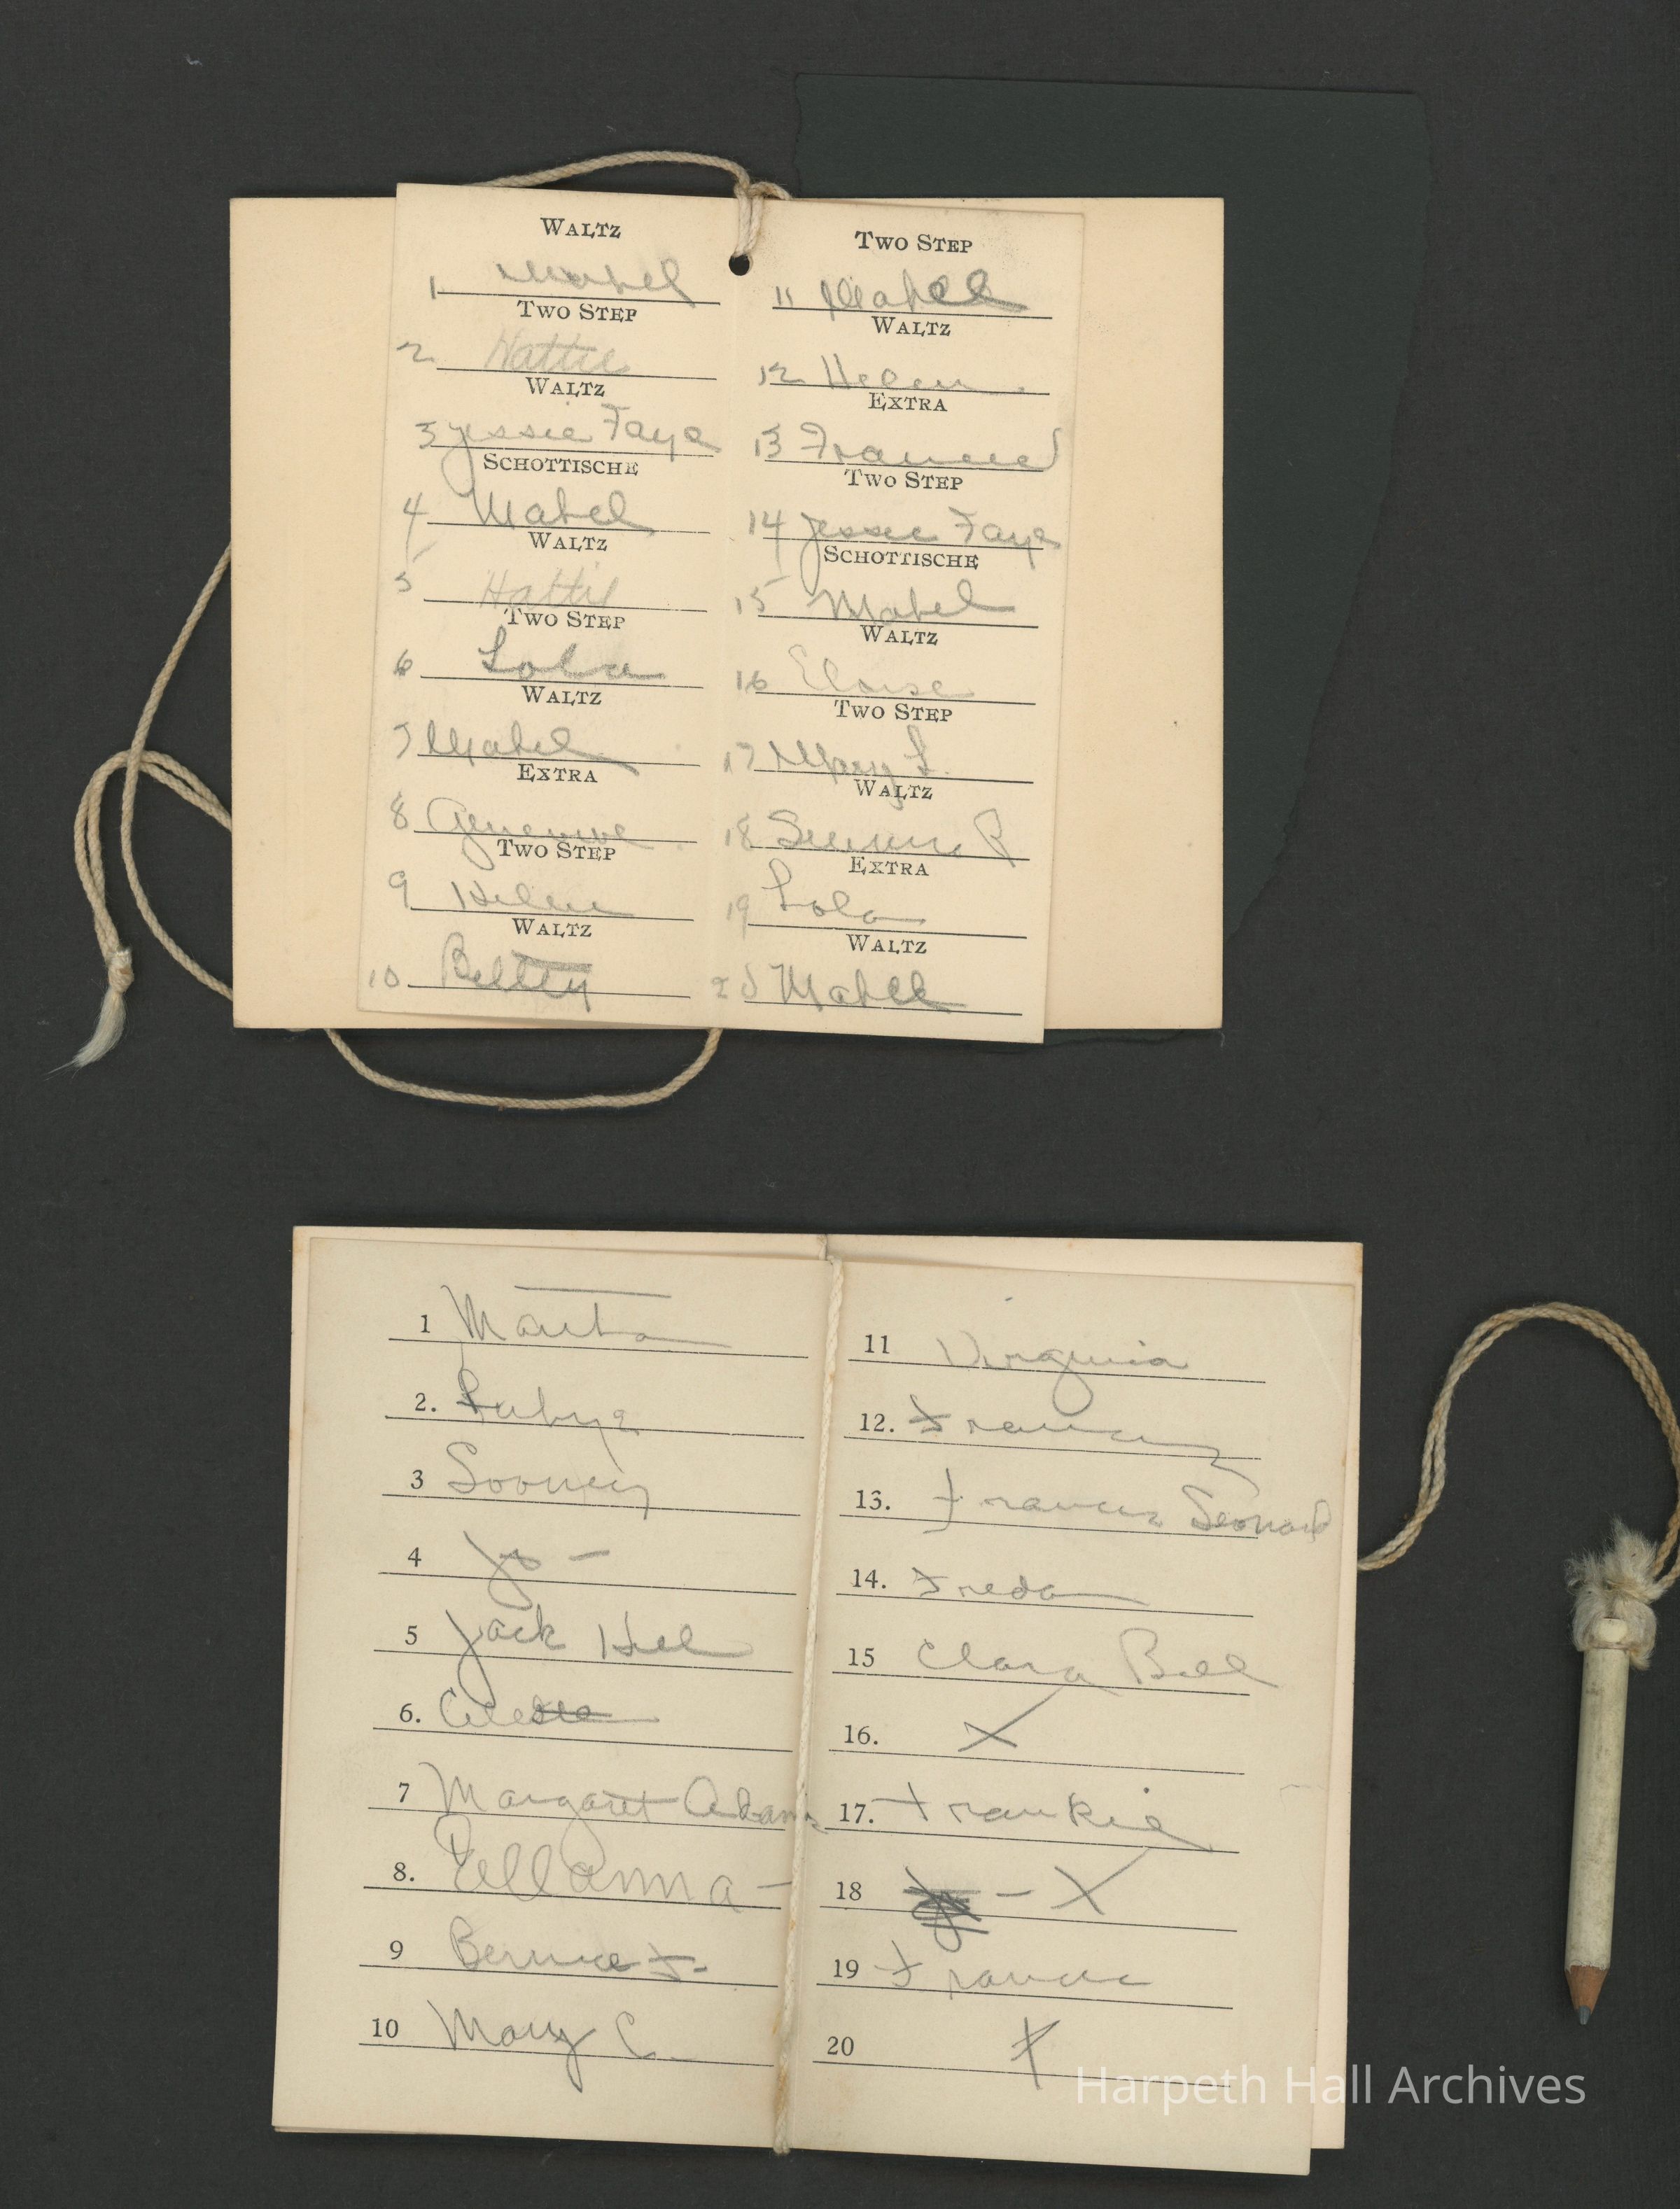 WALTZ
1 Mabel
TWO STEP
2 Hattie
WALTZ
3 Jessie Faye
SCHOTTISCHE
4 Mabel
WALTZ
5 Hattie
TWO STEP
6 Lola
WALTZ
7 Mabel
EXTRA
8 Genevive
TWO STEP
9 Helen
WALTZ
10 Betty
TWO STEP
11 Mabel
WALTZ
12 Helen
EXTRA
13 Frances
TWO STEP
14 Jessie Faye
SCHOTTISCHE
15 Mabel
WALTZ
16 Eloise
TWO STEP
17 Mary L.
WALTZ
18
EXTRA
19 Lola
WALTZ
20 Mabel
1 Martha
2. Rubye
3
4 Jo –
5 Jack
6.
7 Margaret Adams
8. Ellanna –
9 Bernice F.
10 Mary C.
11 Virginia
12. Frances
13. Frances Leonard
14. Freda
15 Clara Bell
16. X
17. Frankie
18 – X
19 Francis
20 X
Harpeth Hall Archives